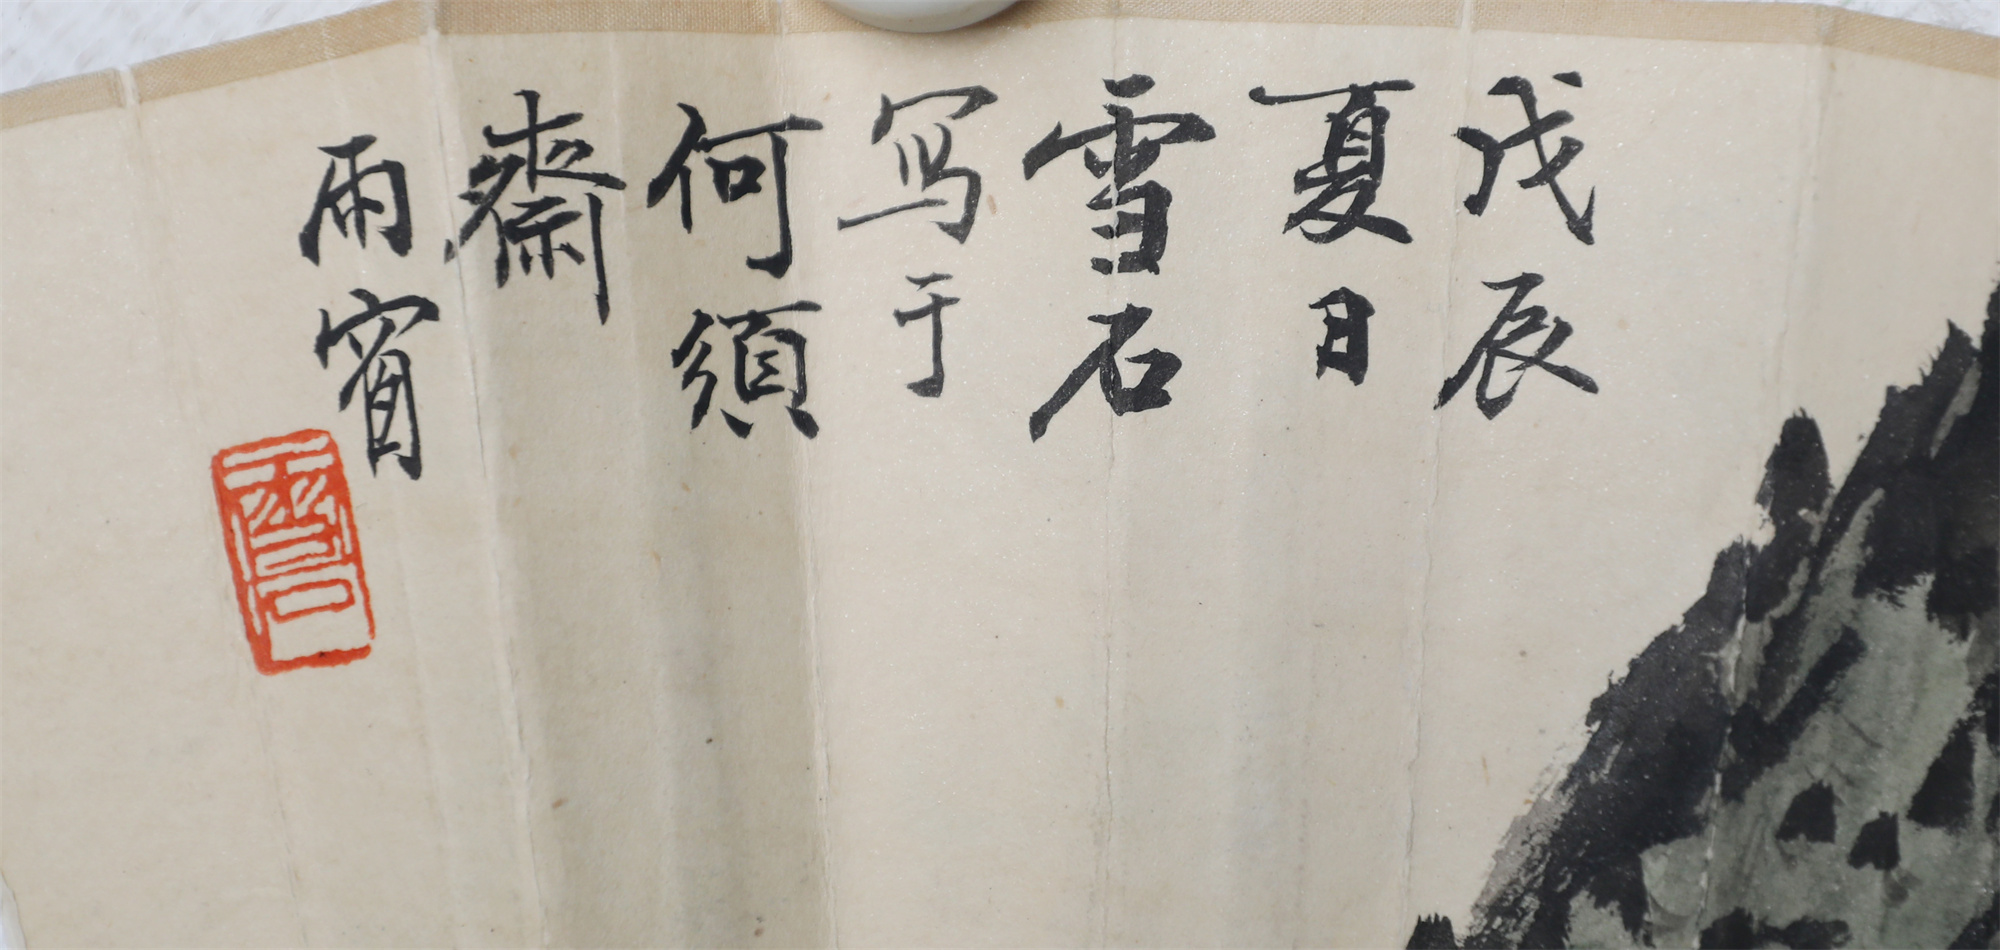 戊辰
夏日
雪石
写于
何須
齋
雨
雪石